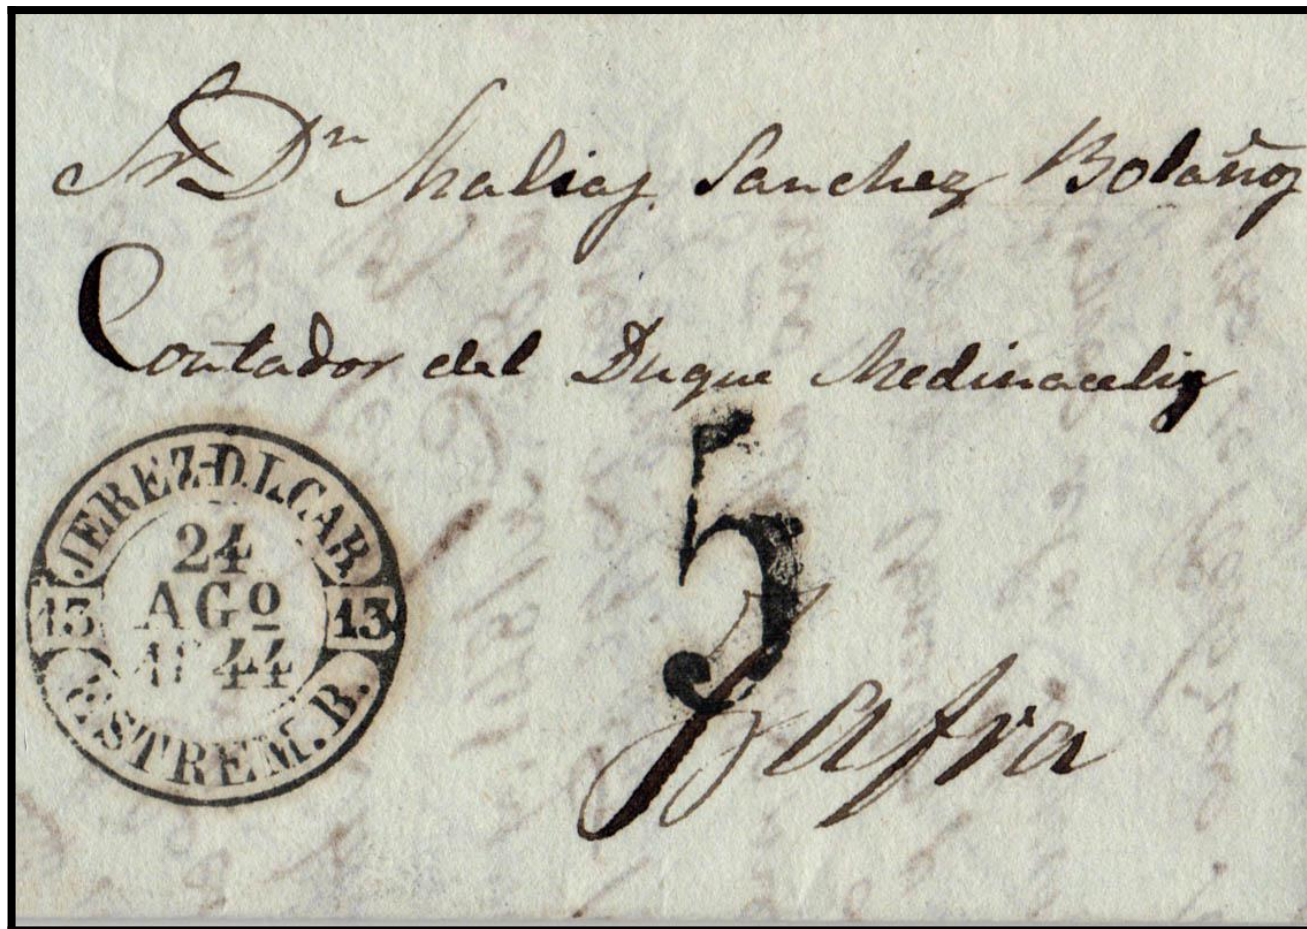 Sr Dn Matias Sanchez Bolaños
Contador del Duque Medinaceliz
JEREZ-D.L.CAB
24
13 AGO 13
1844
ESTREM.B.
5
Zafra